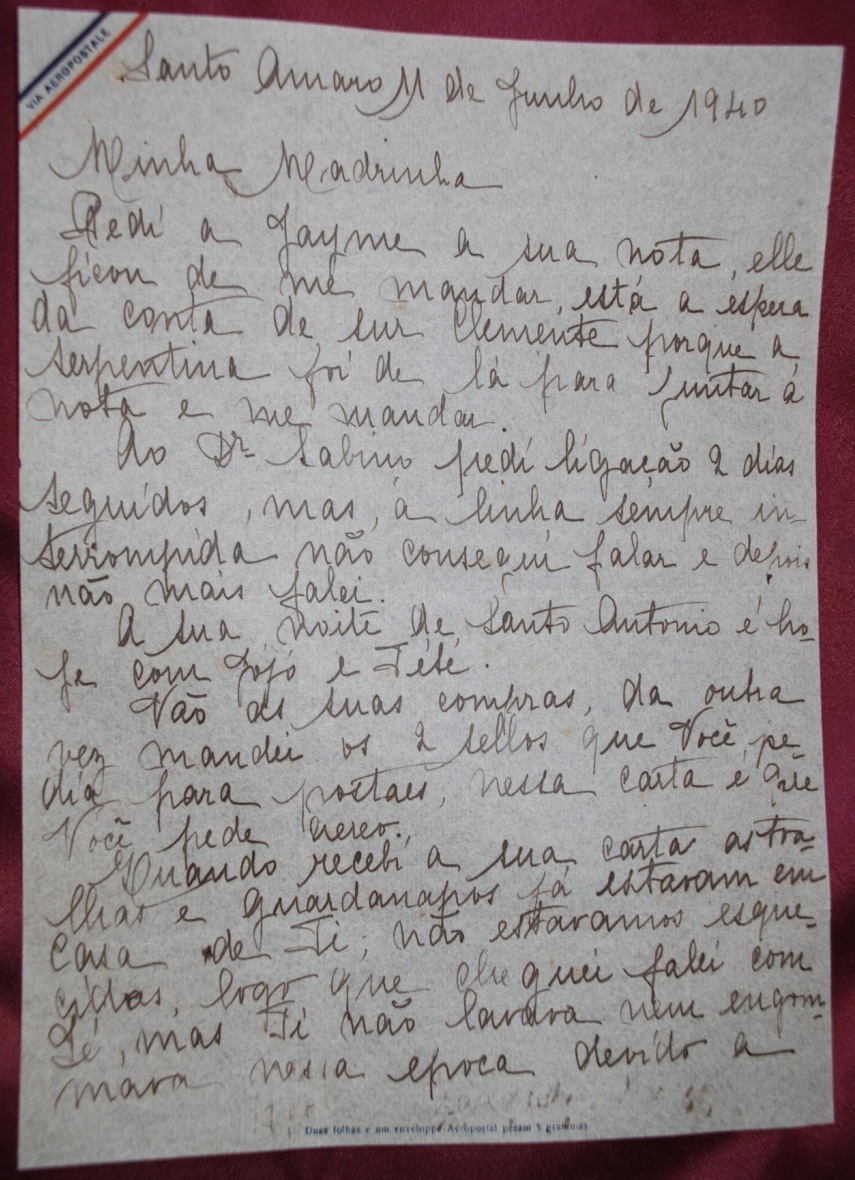 VIA AEROPOSTALE
Santo Amaro 11 de Junho de 1940
Minha Madrinha
Pedi a Jayme a sua nota, elle
ficou de me mandar, está a espera
da conta de sur Clemente porque a
serpentina foi de lá para juntar á
nota e me mandar.
Ao Dr. Sabino pedi ligação 2 dias
seguidos, mas, a linha sempre in-
terrompida não consegui falar e depois
não mais falei.
A sua noite de Santo Antonio é ho-
je com Jójó e Tété.
Vão as suas compras, da outra
vez mandei os 2 sellos que Você pe
dia para postaes, nessa carta é que
Você pede aereo.
Quando recebi a sua carta as toa-
lhas e guardanapos já estavam em
casa de Ti; não estavamos esque-
cidas, logo que cheguei falei com
Té, mas Ti não lavava nem engom-
mava nessa epoca devido a
Duas folhas e um enveloppe Aeropostal pesam 5 grammas